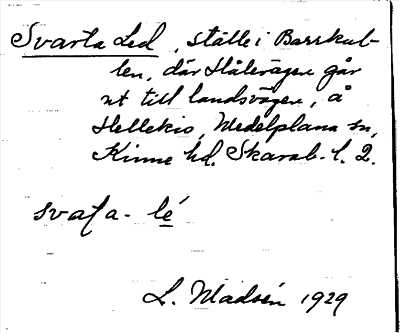 Svarta Led, ställe i Barrkul-
len, där Hålevägen går
ut till landsvägen, å
Hellekis, Medelplana sn,
Kinne hd. Skarab. l. 2.
svaʃa - lé
L. Madsén 1929